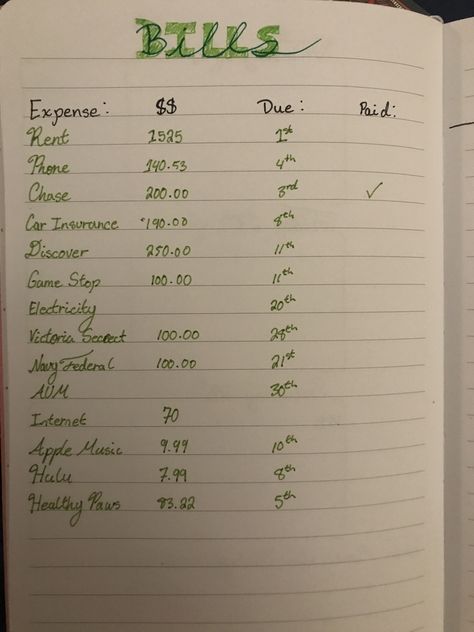 Bills
Expense: $$ Due: Paid:
Rent 1525 1st
Phone 140.53 4th
Chase 200.00 3rd ✓
Car Insurance 190.00 8th
Discover 250.00 11th
Game Stop 100.00 11th
Electricity 20th
Victoria Secrect 100.00 28th
Navy Federal 100.00 21st
30th
Internet 70
Apple Music 9.99 10th
Hulu 7.99 8th
Healthy Paws 83.22 5th